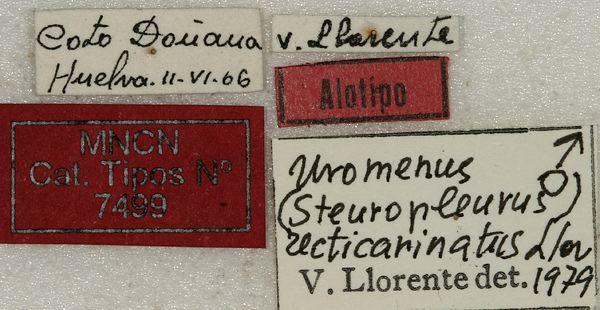 Coto Doñana
Huelva. 11-VI-66
V. Llorente
Alotipo
MNCN
Cat. Tipos Nº
7499
Uromenus ♂
(Steuropleurus)
recticarinatus Llor
V. Llorente det. 1979